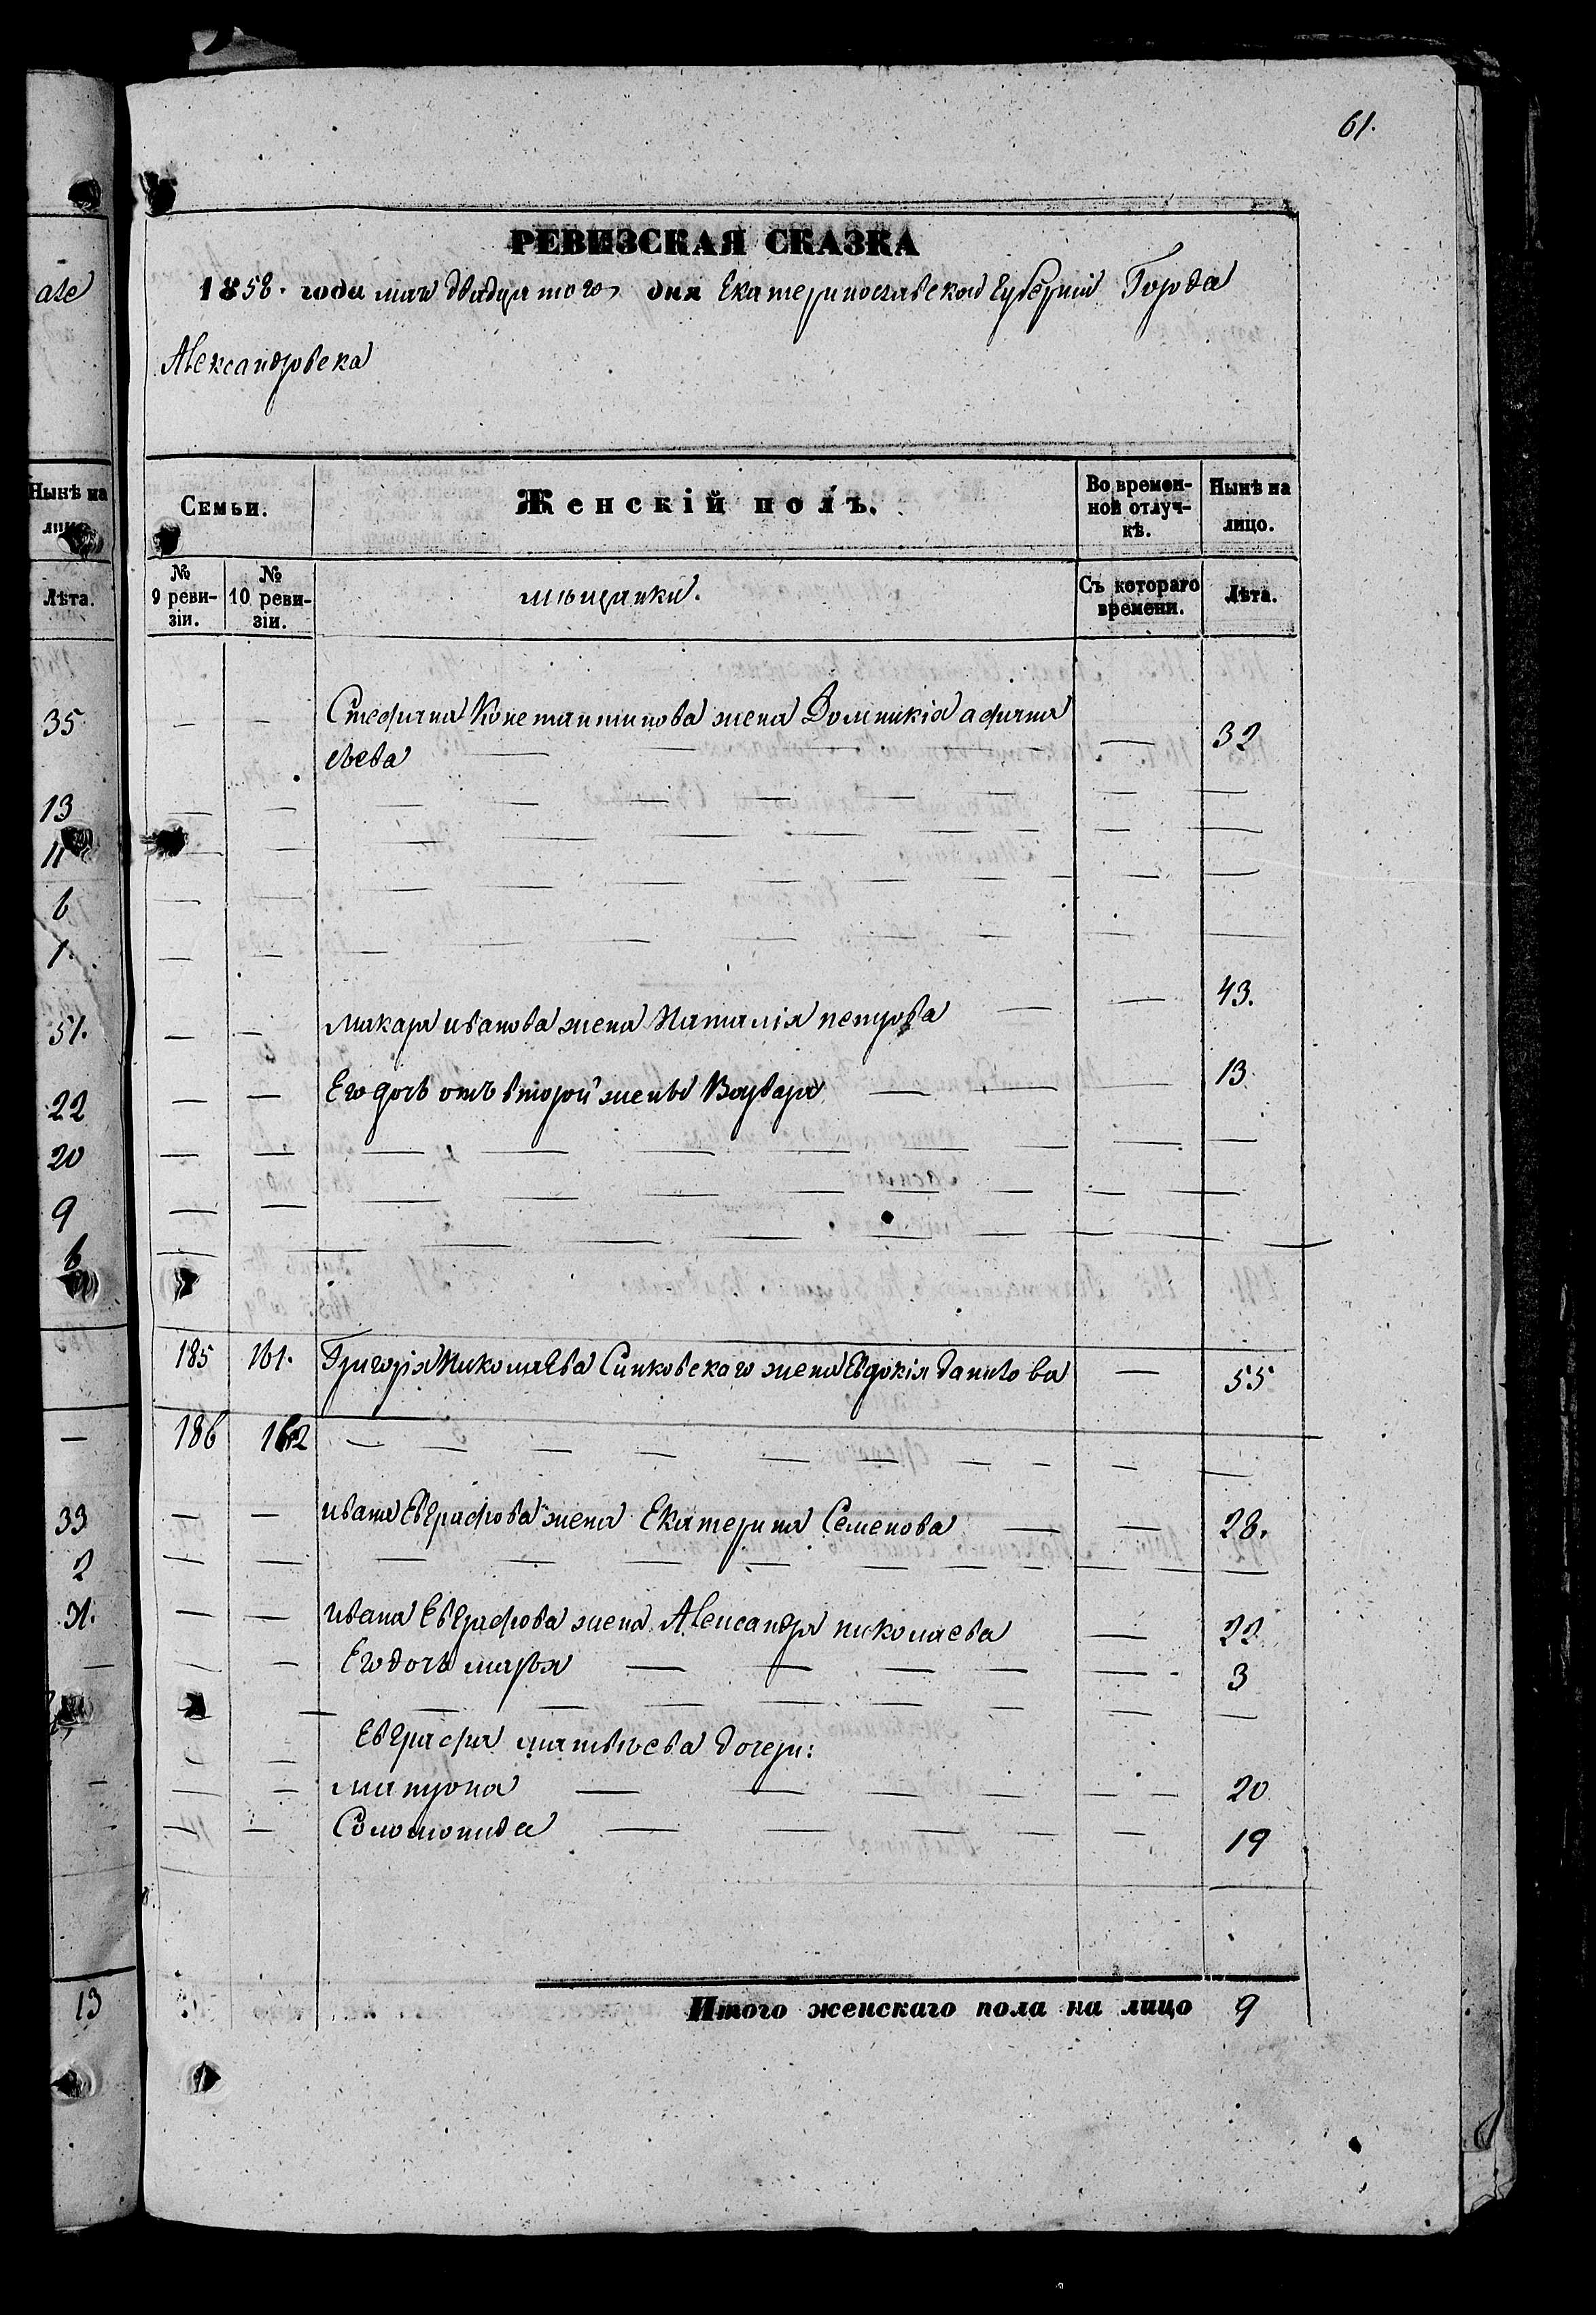 але
Нынѣ на
лицо.
Лѣта.
35
13
11
6
1.
51.
22
20
9
6
—
33
2
31.
13
61.
РЕВИЗСКАЯ СКАЗКА
1858. года мая двадцатого дня Екатеринославской Губернии Города
Александровска
Семьи.
Женскій полъ.
Во времен-
ной отлуч-
кѣ.
Нынѣ на
лицо.
№
9 реви-
зіи.
№
10 реви-
зіи.
мѣщанки.
Съ котораго
времени.
Лѣта.
— — Стефана Константинова жена Домникія афана
сьева — — — — — — 32
— — — — — — — — — —
— — — — — — — — — —
— — — — — — — — — —
— — — — — — — — — —
— — Макара иванова жена Наталія петрова — — 43.
— — Его дочь отъ второй жены Варвара — — — 13
— — — — — — — — — —
— — — — — — — — — —
— — — — — — — — — —
185 161. Григорія Николаева Синковскаго жена Евдокія данилова — 55
186 162 — — — — — — — — —
— — ивана Евграфова жена Екатерина Семенова — — 28.
— — — — — — — — — —
— — ивана Евграфова жена Александра николаева — 22
— — Его дочь марья — — — — — 3
— — — — — — — — —
Евграфа матвѣева дочери:
— — матрона — — — — — — 20
— — Соломонида — — — — — 19
Итого женскаго пола на лицо 9